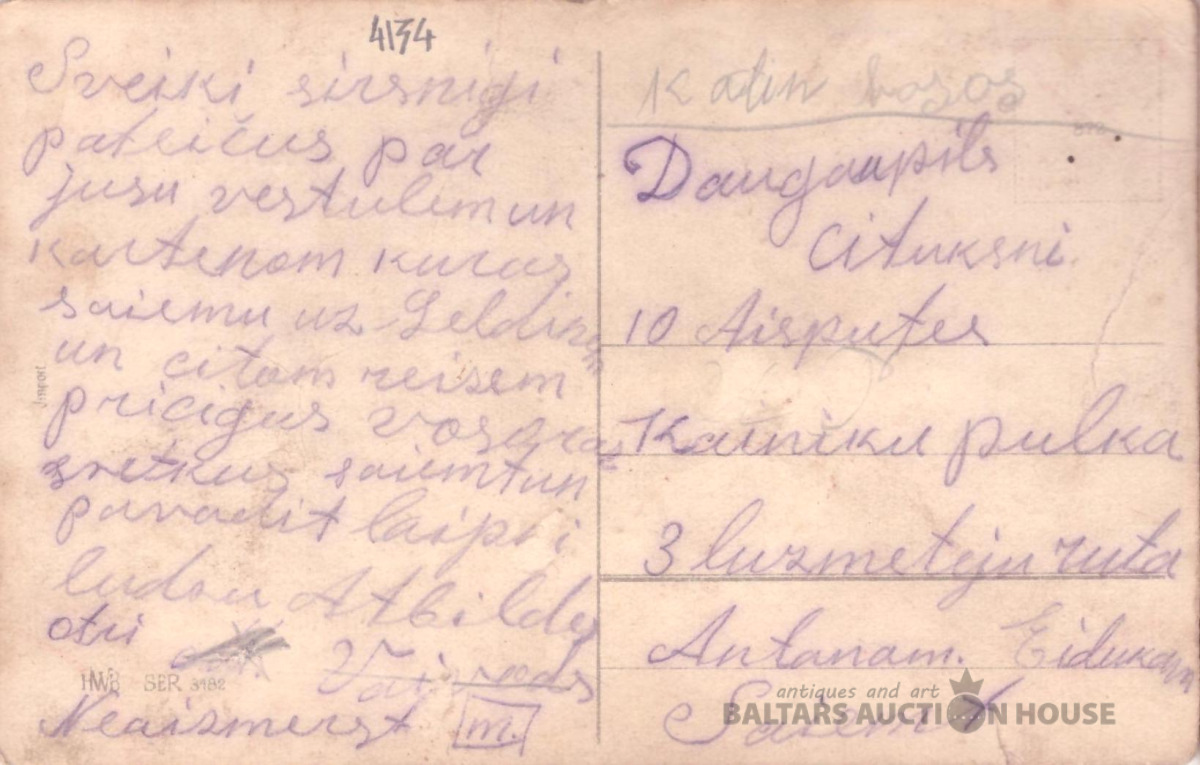 4134
Sveiki sirsnigi
pateičus par
jusu vestulem un
kartenom kuras
saiemu uz
un citam reizem
pricigus
svetkus saiemt un
pavadit laipni
ludzu Atbildes
otri
Neaizmerst m.
HWB SER 3182
Import
K atin
Daugaupils
Cituksni
10 Aisputes
Kainiku pulka
3 luzmeteju ruta
Antanam. Eidukam
Saiemt
antiques and art
BALTARS AUCTION HOUSE